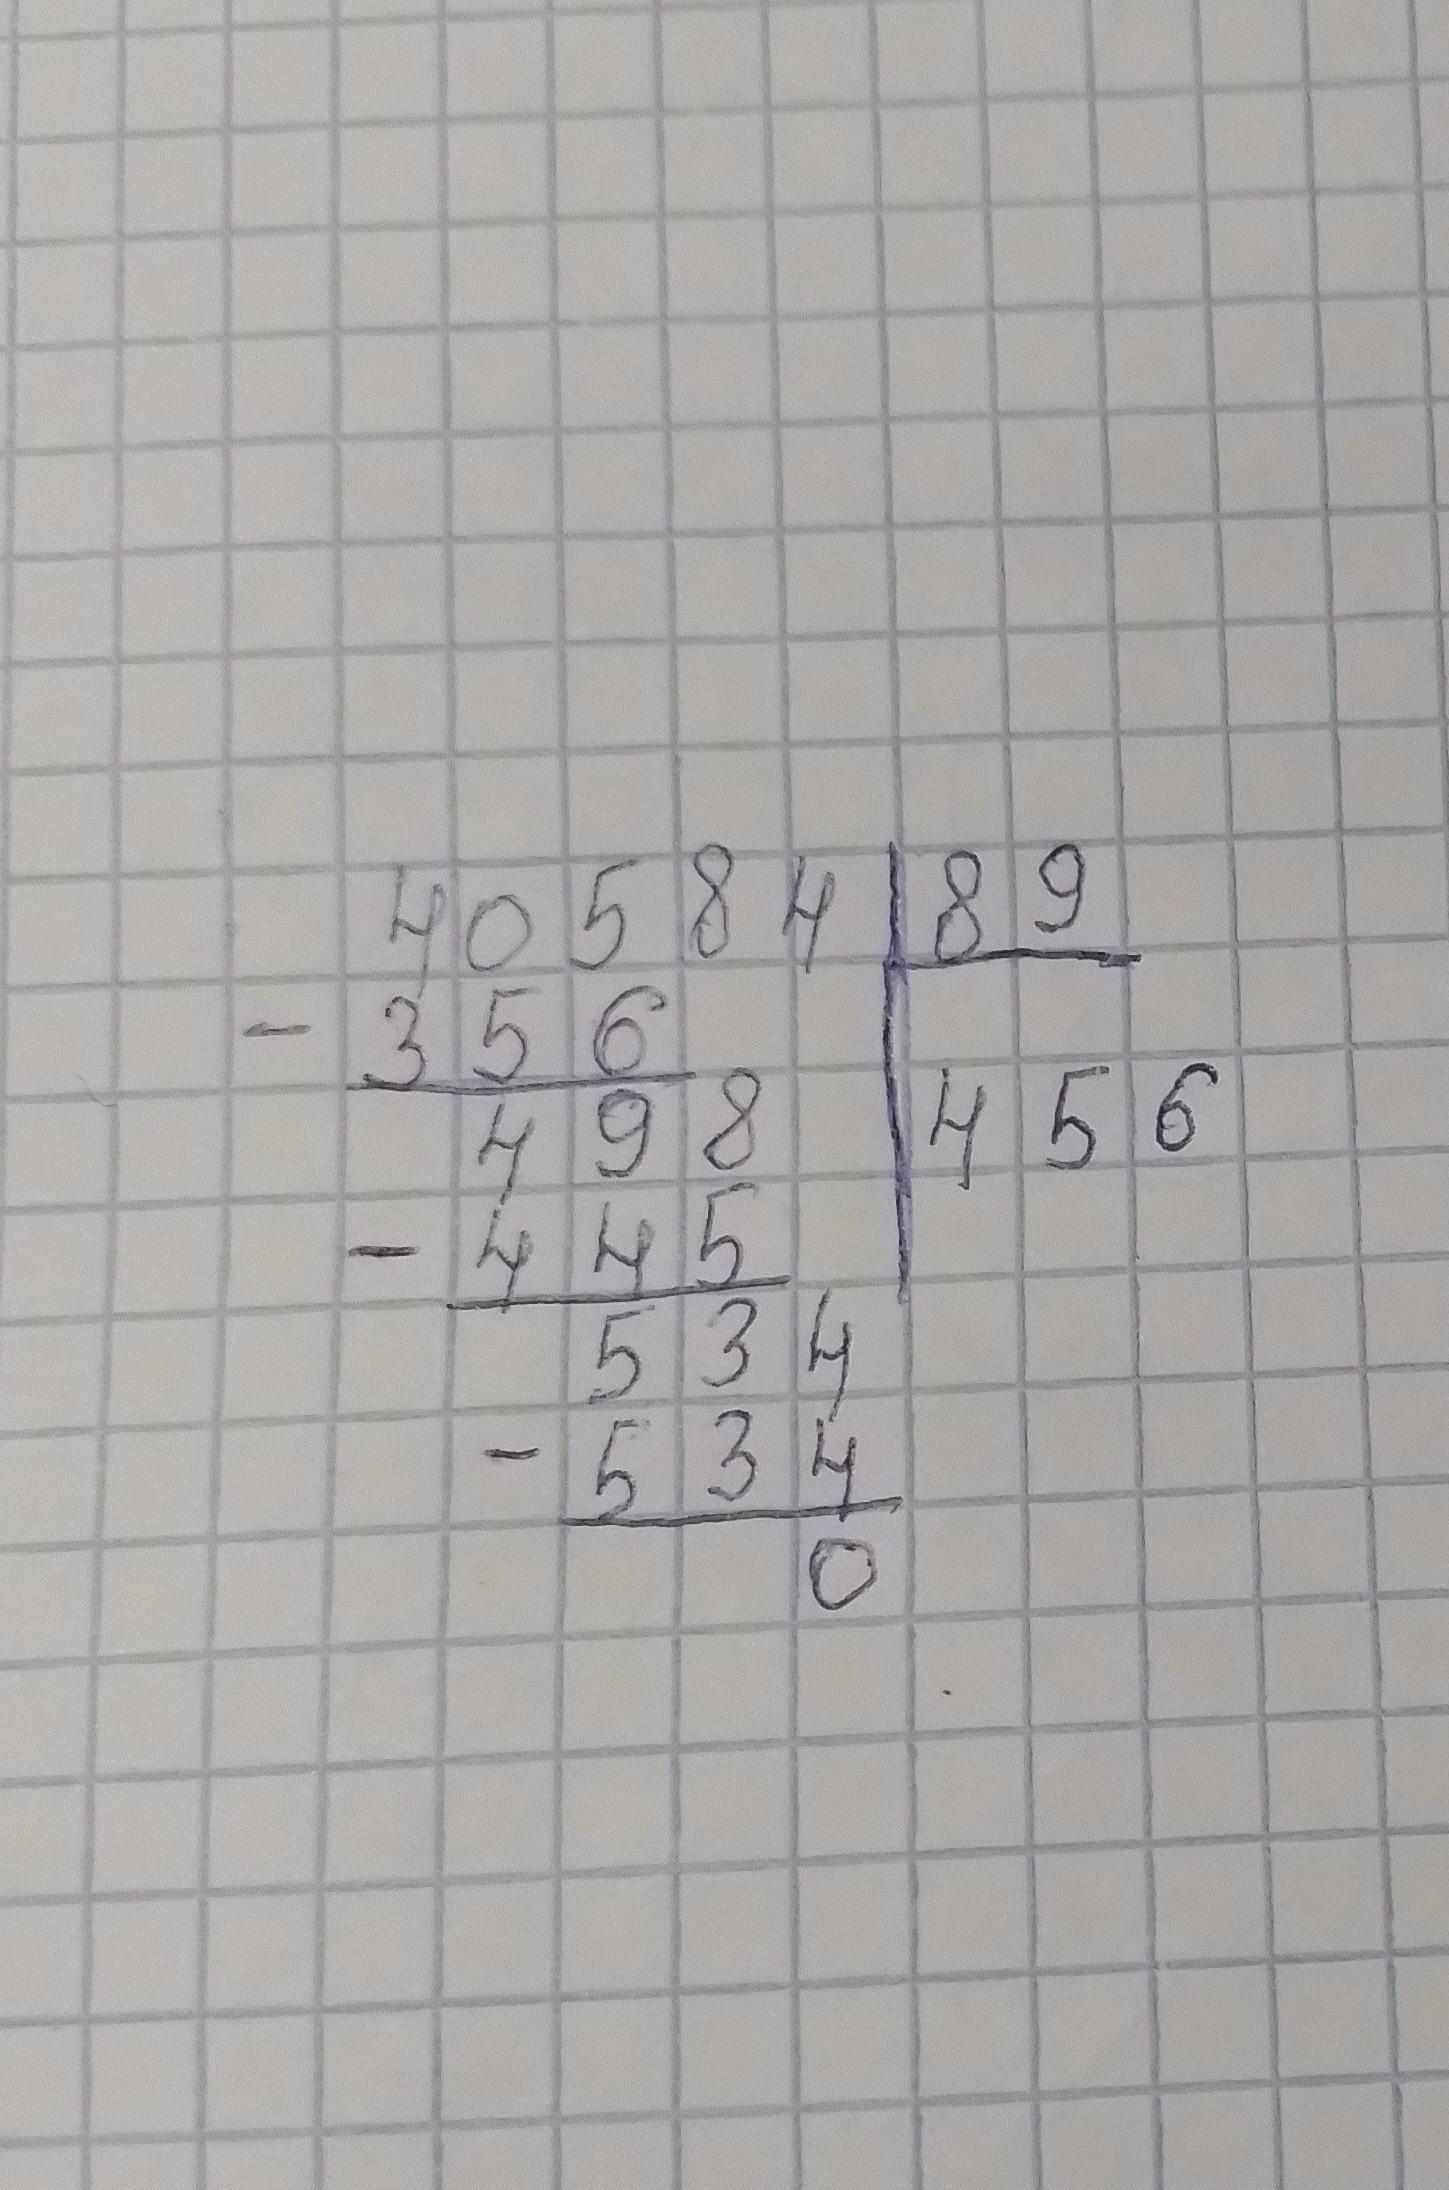 40584 | 89
- 356
498 | 456
- 445
534
- 534
0